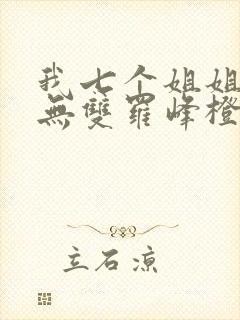 我七个姐姐
無雙羅峰橙
立石涼